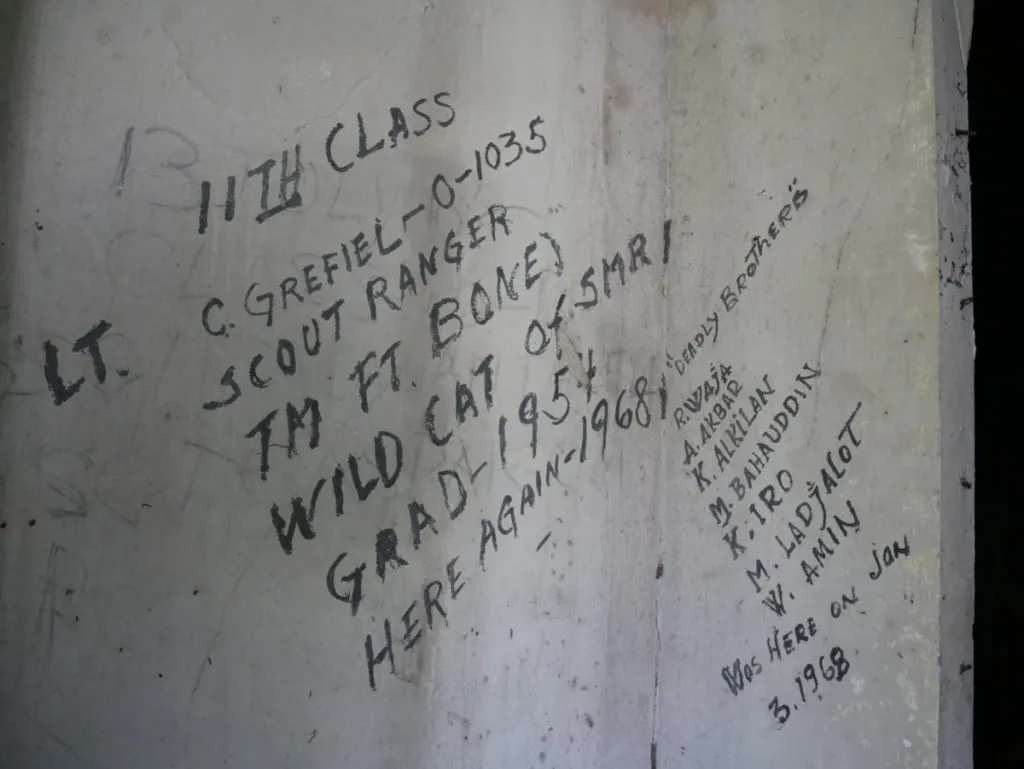 13
11TH CLASS
LT. C. GREFIEL-O-1035
SCOUT RANGER
TM FT. BONE)
WILD CAT Of SMR
GRAD-1954
HERE AGAIN-1968
"DEADLY BROTHERS"
R.WAJA
A.AKBAR
K. ALKILAN
M. BAHAUDDIN
K. IRO
M. LADJALOT
W. AMIN
Was HERE ON Jan
3.1968